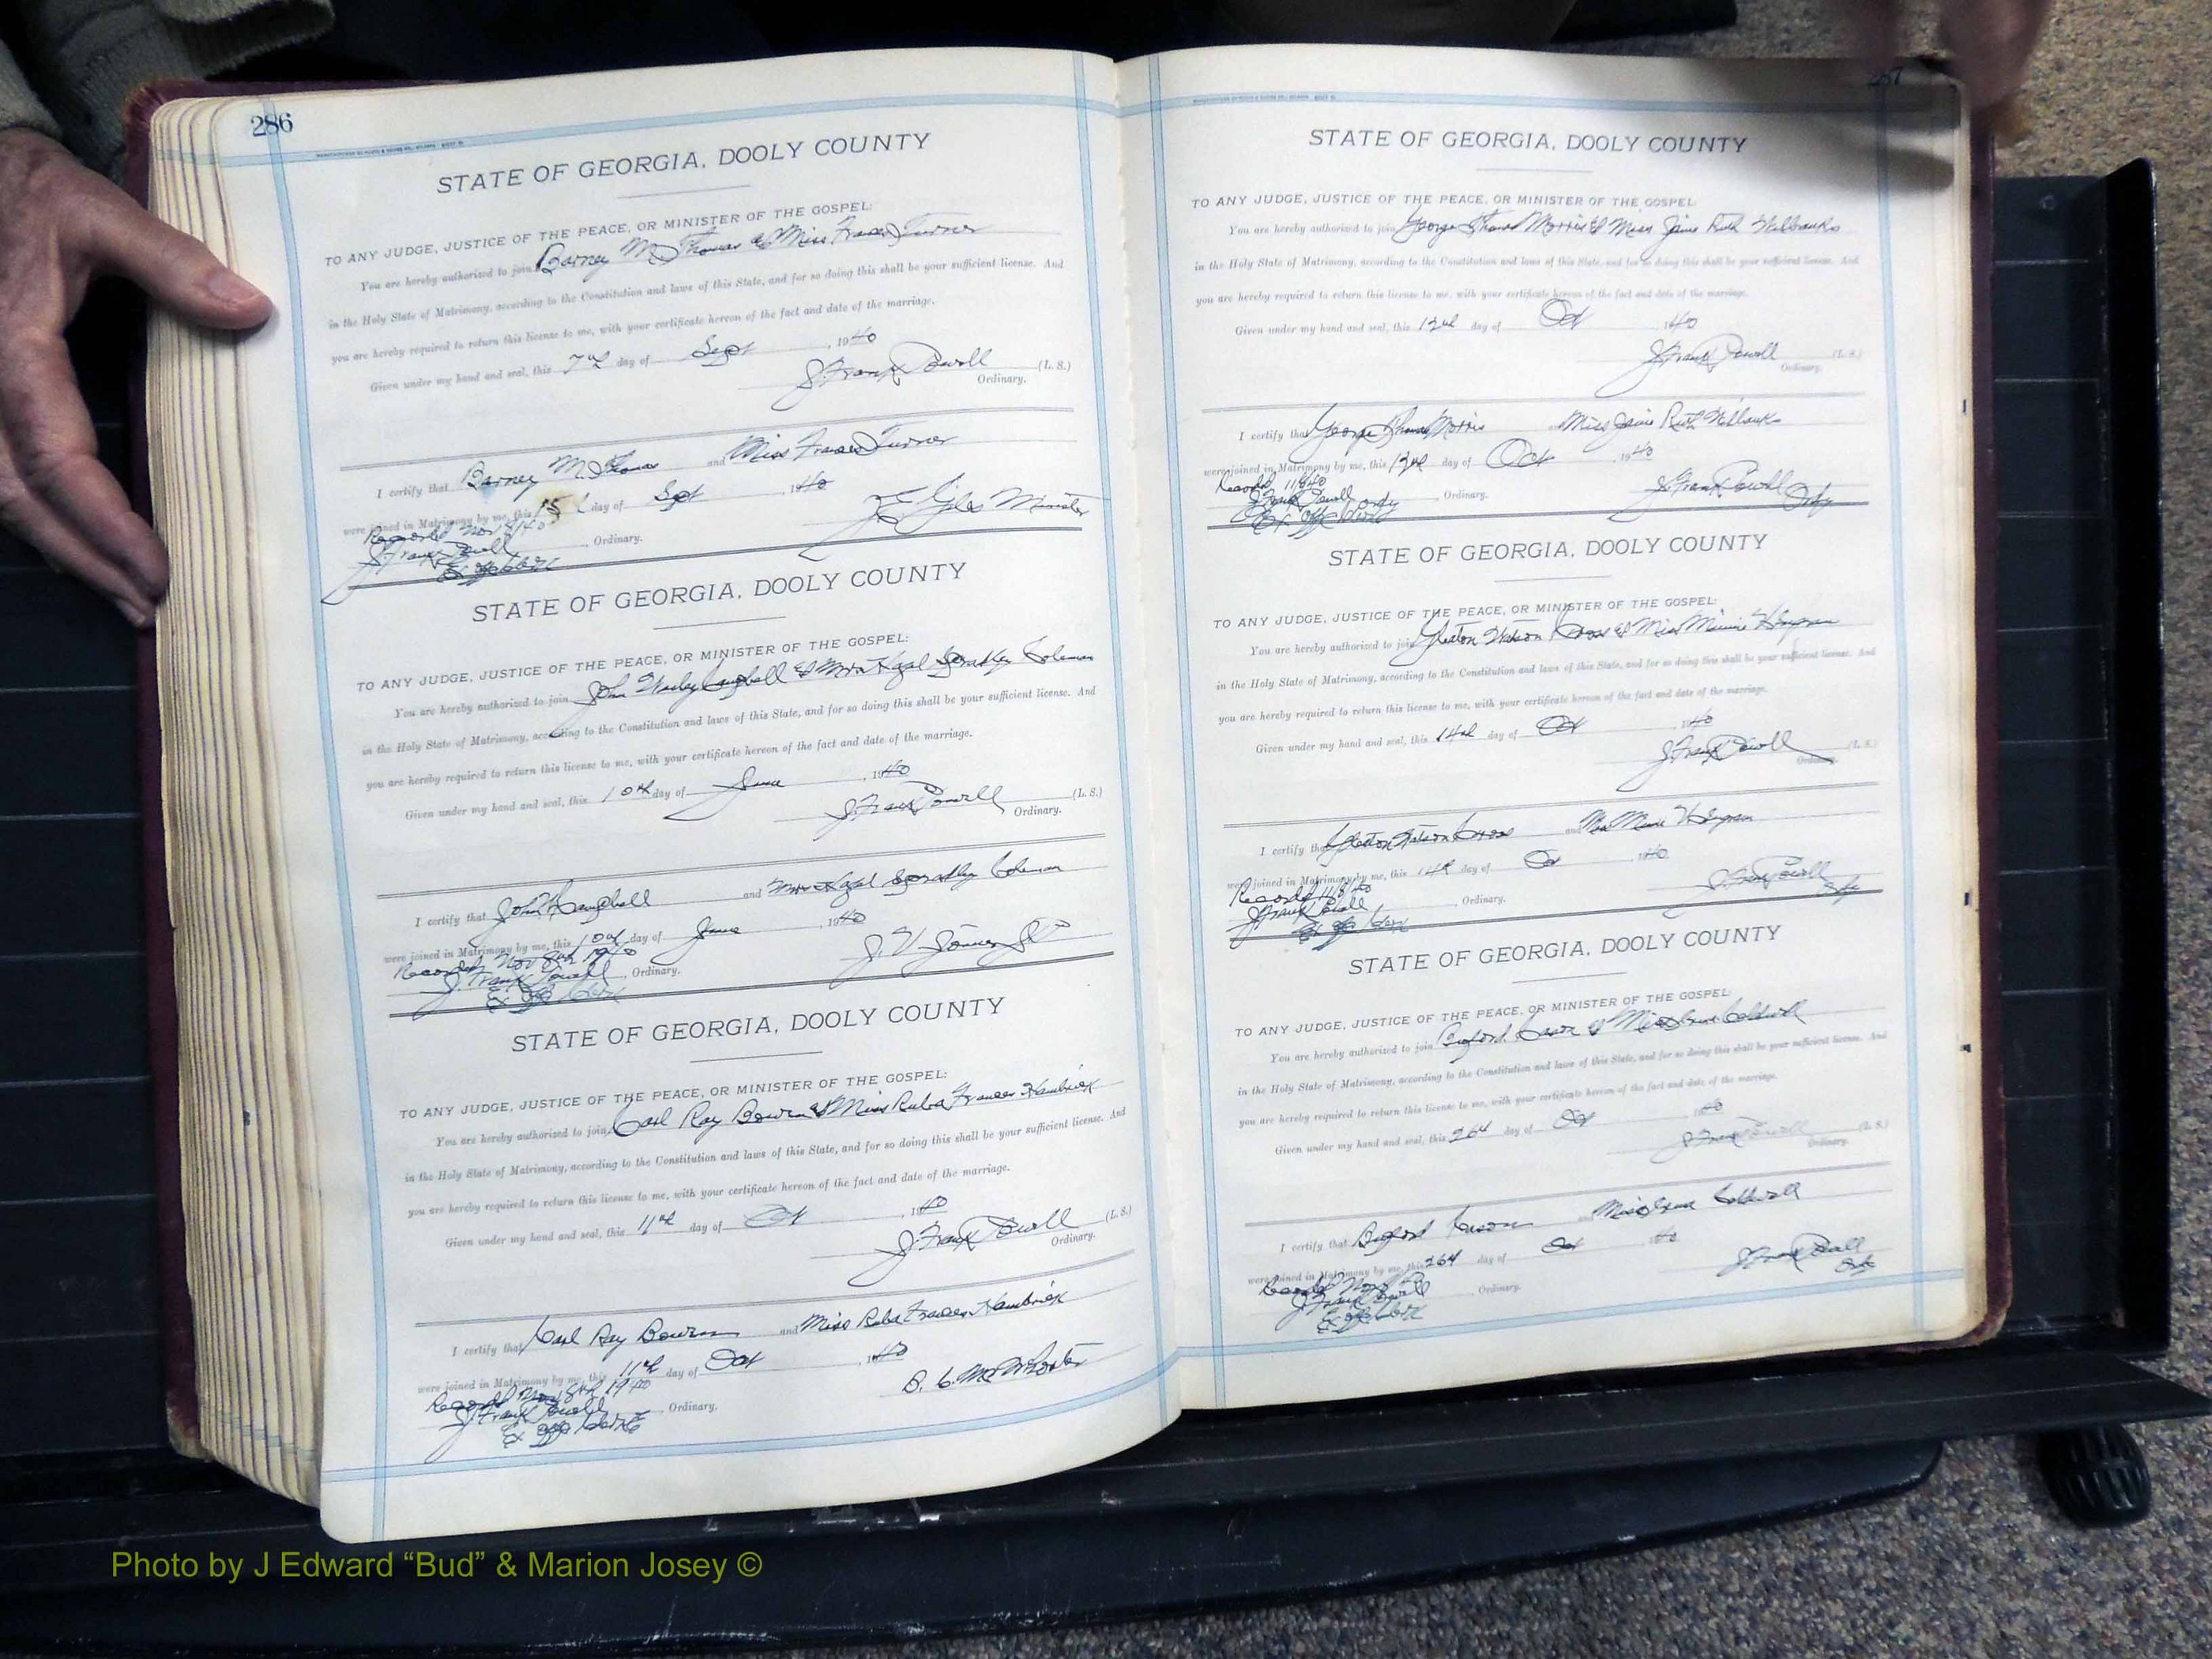 286
STATE OF GEORGIA, DOOLY COUNTY
TO ANY JUDGE, JUSTICE OF THE PEACE, OR MINISTER OF THE GOSPEL:
You are hereby authorized to join Barney M Thomas & Miss Frances Turner
in the Holy State of Matrimony, according to the Constitution and laws of this State, and for so doing this shall be your sufficient license. And
you are hereby required to return this license to me, with your certificate hereon of the fact and date of the marriage.
Given under my hand and seal, this 7th day of Sept, 1940
J. Frank Powell (L. S.)
Ordinary.
I certify that Barney M. Thomas and Miss Frances Turner
were joined in Matrimony by me, this 15 day of Sept, 1940
Recorded Nov 8/40
J. Frank Powell, Ordinary.
Giles Minister
Ex off Clerk
STATE OF GEORGIA, DOOLY COUNTY
TO ANY JUDGE, JUSTICE OF THE PEACE, OR MINISTER OF THE GOSPEL:
You are hereby authorized to join John Wesley Campbell & Mrs Hazel Spradley Coleman
in the Holy State of Matrimony, according to the Constitution and laws of this State, and for so doing this shall be your sufficient license. And
you are hereby required to return this license to me, with your certificate hereon of the fact and date of the marriage.
Given under my hand and seal, this 10th day of June, 1940
J. Frank Powell (L. S.)
Ordinary.
I certify that John W Campbell and Mrs Hazel Spradley Coleman
were joined in Matrimony by me, this 10th day of June, 1940
Recorded Nov 8th 1940
J. Frank Powell, Ordinary.
Ex off Clerk
STATE OF GEORGIA, DOOLY COUNTY
TO ANY JUDGE, JUSTICE OF THE PEACE, OR MINISTER OF THE GOSPEL:
You are hereby authorized to join Carl Ray Bowen & Miss Ruba Frances Hambrick
in the Holy State of Matrimony, according to the Constitution and laws of this State, and for so doing this shall be your sufficient license. And
you are hereby required to return this license to me, with your certificate hereon of the fact and date of the marriage.
Given under my hand and seal, this 11th day of Oct, 1940
J. Frank Powell (L. S.)
Ordinary.
I certify that Carl Ray Bowen and Miss Ruba Frances Hambrick
were joined in Matrimony by me, this 11th day of Oct, 1940
Recorded Nov 8th 1940
J. Frank Powell, Ordinary.
Ex off Clerk
287
STATE OF GEORGIA, DOOLY COUNTY
TO ANY JUDGE, JUSTICE OF THE PEACE, OR MINISTER OF THE GOSPEL:
You are hereby authorized to join George Thomas Morris & Miss Ruth
in the Holy State of Matrimony, according to the Constitution and laws of this State, and for so doing this shall be your sufficient license. And
you are hereby required to return this license to me, with your certificate hereon of the fact and date of the marriage.
Given under my hand and seal, this day of Oct 1940
J. Frank Powell (L. S.)
Ordinary.
I certify that George Thomas Morris and Miss Ruth
were joined in Matrimony by me, this day of Oct, 1940
Recorded 11/8/40
J Frank Powell Ordy, Ordinary.
J. Frank Powell Ordy
Ex off Clerk
STATE OF GEORGIA, DOOLY COUNTY
TO ANY JUDGE, JUSTICE OF THE PEACE, OR MINISTER OF THE GOSPEL:
You are hereby authorized to join Watson & Miss
in the Holy State of Matrimony, according to the Constitution and laws of this State, and for so doing this shall be your sufficient license. And
you are hereby required to return this license to me, with your certificate hereon of the fact and date of the marriage.
Given under my hand and seal, this 14th day of Oct 1940
J. Frank Powell (L. S.)
Ordinary.
I certify that Watson and
were joined in Matrimony by me, this 14th day of Oct, 1940.
Recorded 11/8/40
J Frank Powell, Ordinary.
J. Frank Powell Ordy
Ex off Clerk
STATE OF GEORGIA, DOOLY COUNTY
TO ANY JUDGE, JUSTICE OF THE PEACE, OR MINISTER OF THE GOSPEL:
You are hereby authorized to join Cason & Miss Caldwell
in the Holy State of Matrimony, according to the Constitution and laws of this State, and for so doing this shall be your sufficient license. And
you are hereby required to return this license to me, with your certificate hereon of the fact and date of the marriage.
Given under my hand and seal, this 26th day of Oct 1940
J. Frank Powell (L. S.)
Ordinary.
I certify that Cason and Miss Caldwell
were joined in Matrimony by me, this 26th day of Oct 1940
J. Frank Powell Ordy
J. Frank Powell, Ordinary.
Ex off Clerk
Photo by J Edward “Bud” & Marion Josey ©